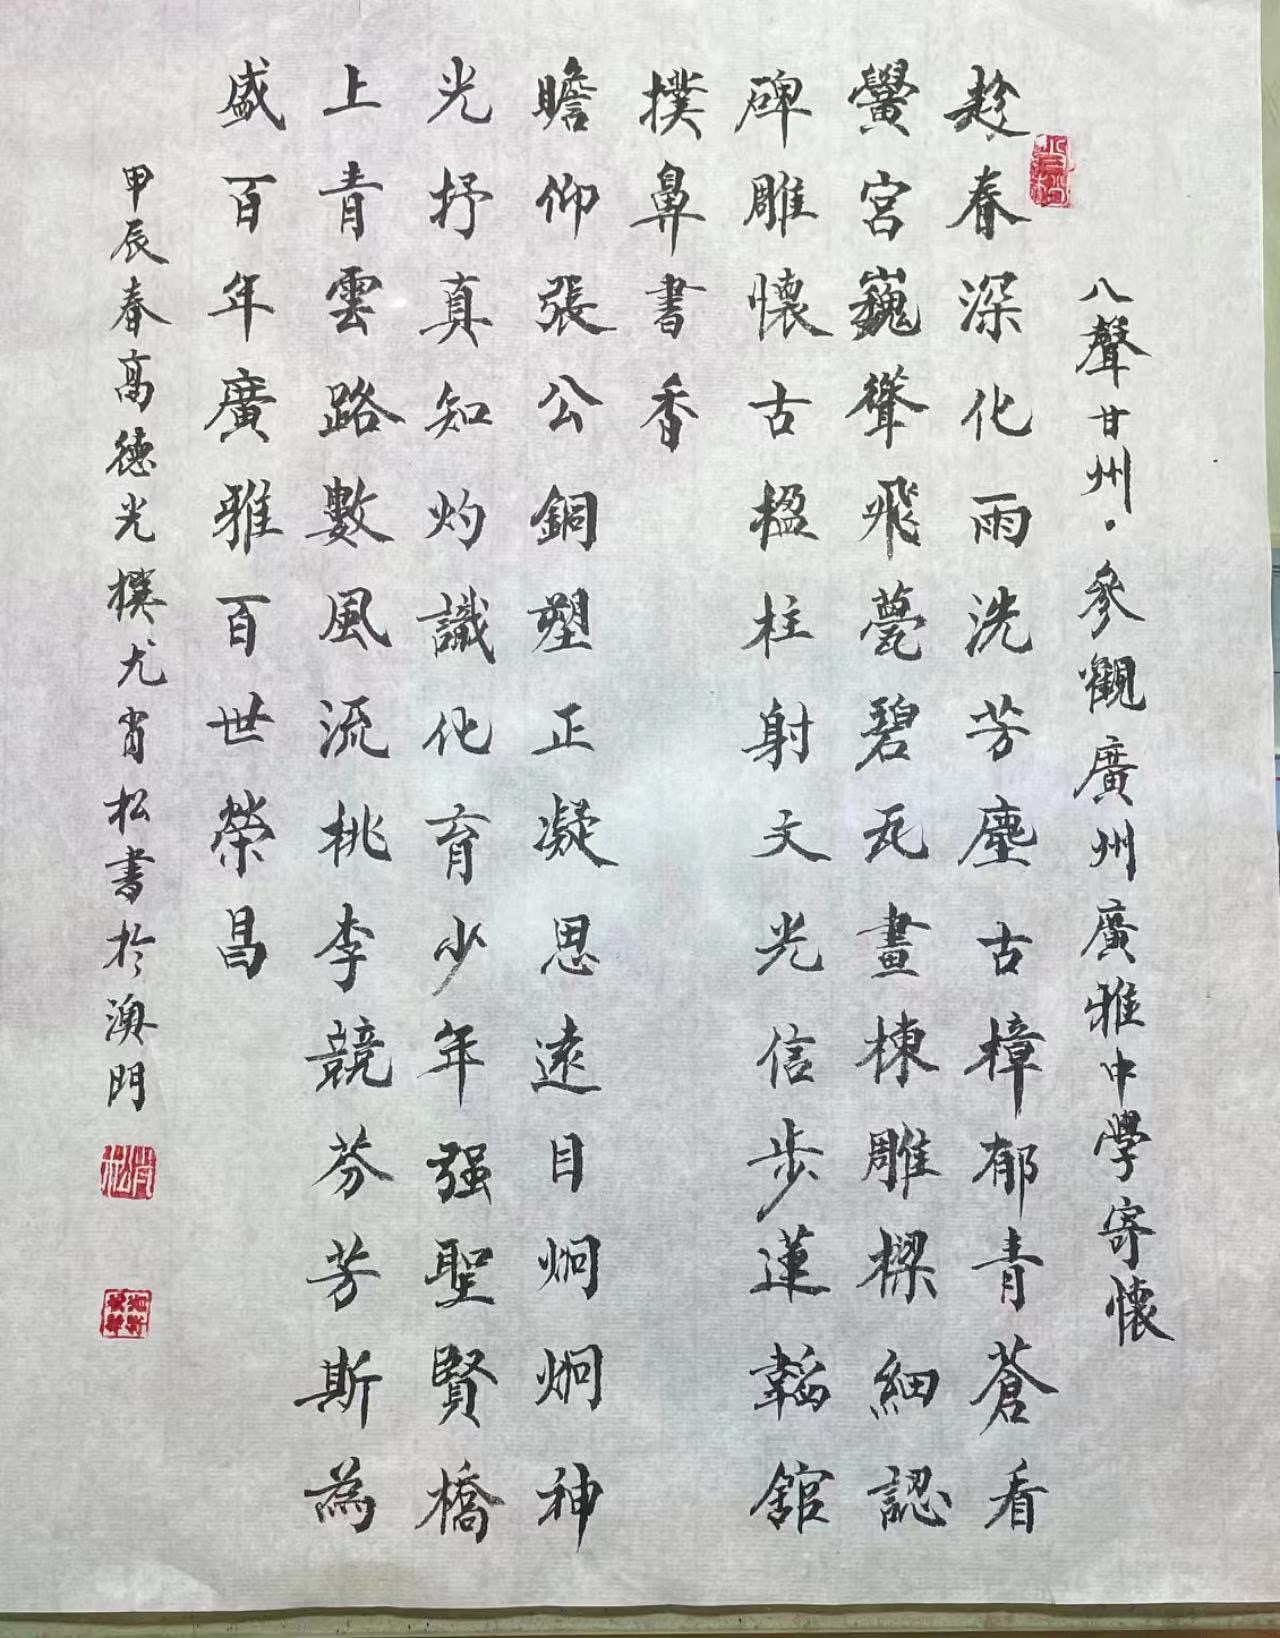 八聲甘州·參觀廣州廣雅中學寄懷
趁春深化雨洗芳塵古樟郁青蒼看
黌宮巍聳飛甍碧瓦畫棟雕樑細認
碑雕懷古楹柱射文光信步蓮韜館
撲鼻書香
瞻仰張公銅塑正凝思遠目炯炯神
光抒真知灼識化育少年强聖賢橋
上青雲路數風流桃李競芬芳斯為
盛百年廣雅百世榮昌
甲辰春高德光撰尤肖松書於澳門
肖松